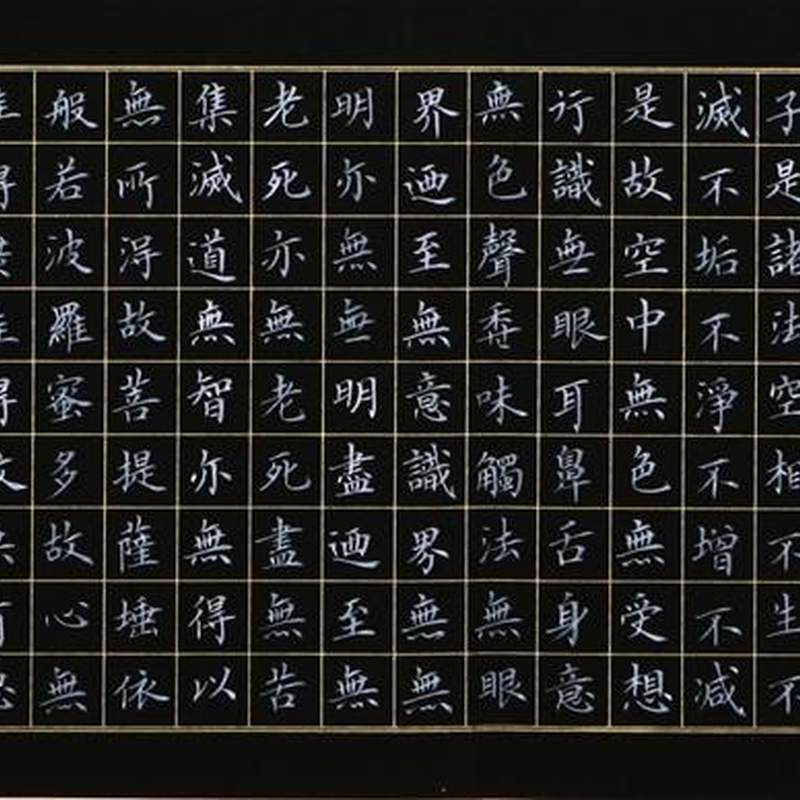 子是諸法空相不生不
滅不垢不淨不增不減
是故空中無色無受想
行識無眼耳鼻舌身意
無色聲香味觸法無眼
界迺至無意識界無無
明亦無無明盡迺至無
老死亦無老死盡無苦
集滅道無智亦無得以
無所得故菩提薩埵依
般若波羅蜜多故心無